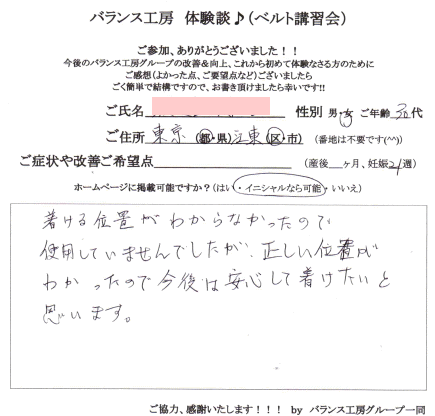 バランス工房 体験談♪(ベルト講習会)
ご参加、ありがとうございました！！
今後のバランス工房グループの改善＆向上、これから初めて体験なさる方のために
ご感想(よかった点、ご要望点など)ございましたら
ごく簡単で結構ですので、お書き頂けましたら幸いです!!
ご氏名 性別 男・女 ご年齢 30代
ご住所 東京 (都・県) 江東 (区・市) (番地は不要です(^^))
ご症状や改善ご希望点 (産後 ヶ月、妊娠 21週)
ホームページに掲載可能ですか？(はい・イニシャルなら可能・いいえ)
着ける位置がわからなかったので
使用していませんでしたが、正しい位置が
わかったので今後は安心して着けたいと
思います。
ご協力、感謝いたします！！！ by バランス工房グループ一同